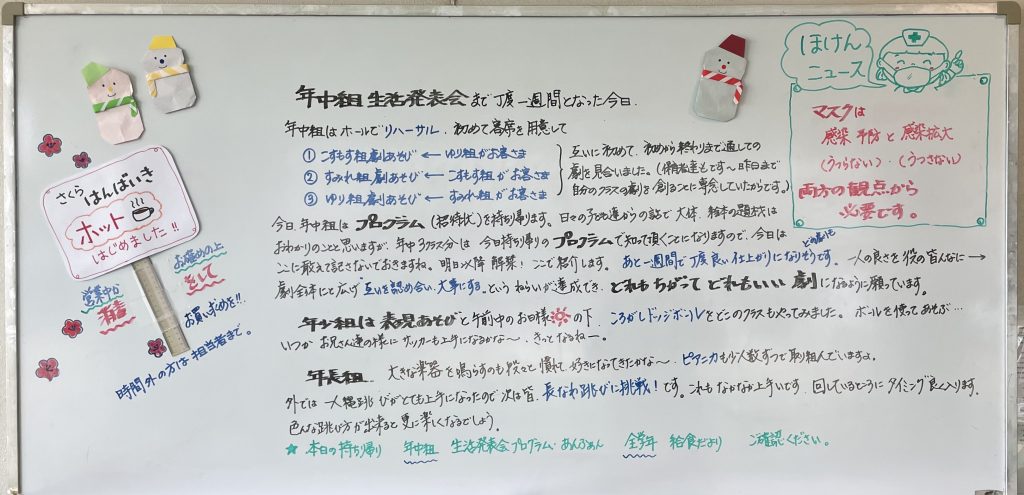 年中組 生活発表会まで丁度一週間となった今日、
年中組はホールでリハーサル、初めて客席を用意して
① こすもす組劇あそび ← ゆり組がお客さま
② すみれ組劇あそび ← こすもす組がお客さま
③ ゆり組劇あそび ← すみれ組がお客さま
互いに初めて、初めから終わりまで通しての
劇を見合いました。(保育者達もです〜昨日まで
自分のクラスの劇を創ることに専念していたからです。)
今日、年中組は プログラム(招待状)を持ち帰ります。日々の子ども達からの話で大体、絵本の題材は
おわかりのことと思いますが、年中3クラス分は 今日持ち帰りのプログラムで知って頂くことになりますので、今日は
ここに敢えて記さないでおきますね。明日以降 解禁! ここで紹介します。 あと一週間で丁度良い仕上がりになりそうです。 一人の良さを 役の皆んなに→
どの劇も
劇全体にと広げ 互いを認め合い、大事にする。というねらいが達成でき、どれもちがって どれもいい 劇になるように願っています。
年少組は 表現あそびと午前中のお日様の下、 ころがしドッジボールをどこのクラスもやってみました。 ボールを使ってあそぶ…
いつか お兄さん達の様に サッカーも上手になるかな〜、きっとなるねー。
年長組、 大きな楽器を鳴らすのも段々と慣れて 好きになってきたかな〜、ピアニカも少人数ずつで取り組んでいますよ。
外では 一人縄跳びがとても上手になったので 次は皆、長なわ跳びに挑戦!です。これもなかなか上手いです、回しているところにタイミング良く入ります。
色んな跳び方が出来ると更に楽しくなるでしょう。
★ 本日の持ち帰り 年中組 生活発表会プログラム・あんふぁん 全学年 給食だより ご確認ください。
ほけん
ニュース
マスクは
感染予防と感染拡大
(うつらない)・(うつさない)
両方の観点から
必要です。
さくら はんばいき
ホット
はじめました!!
お薦めの上
営業中
お買い求めを!!
時間外の方は 担当者まで。